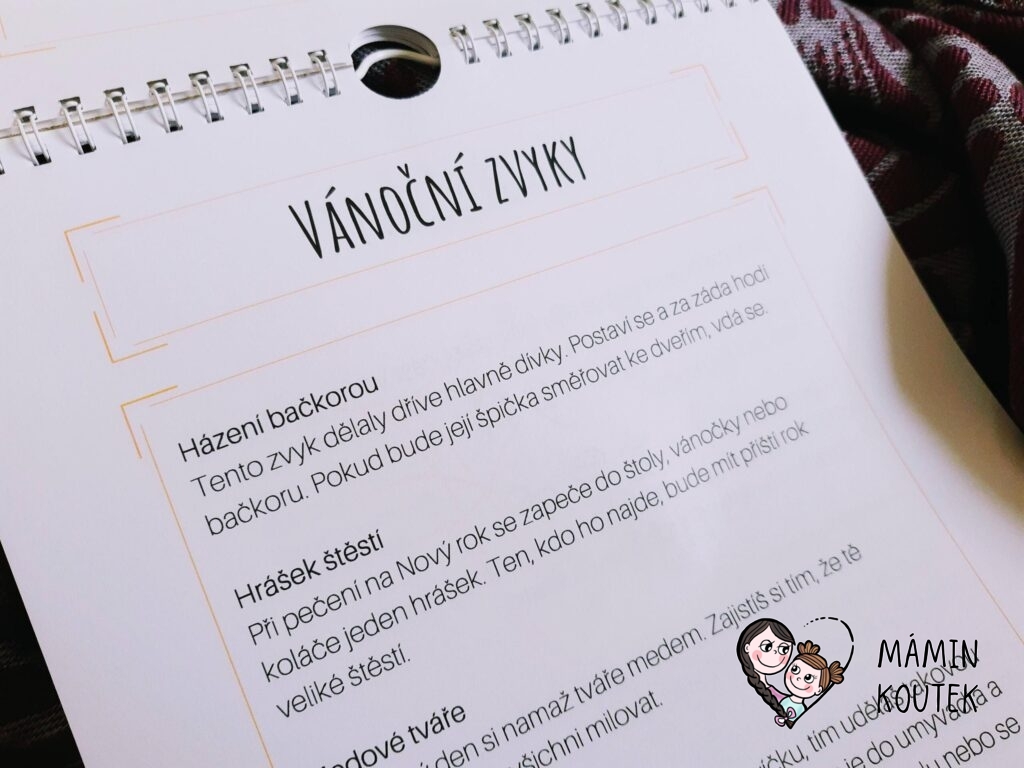 Vánoční zvyky
Házení bačkorou
Tento zvyk dělaly dříve hlavně dívky. Postaví se a za záda hodí
bačkoru. Pokud bude její špička směřovat ke dveřím, vdá se.
Hrášek štěstí
Při pečení na Nový rok se zapeče do štoly, vánočky nebo
koláče jeden hrášek. Ten, kdo ho najde, bude mít příští rok
veliké štěstí.
tváře
den si namaž tváře medem. Zajistíš si tím, že tě
všichni milovat.
tím
je do umyvadla a
nebo se
MÁMIN
KOUTEK